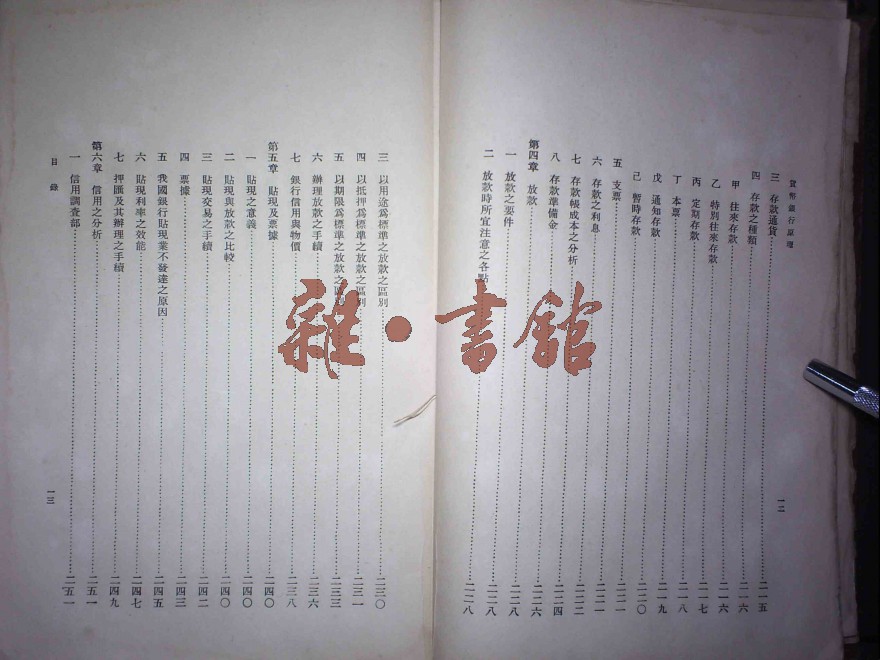 貨幣銀行原理
一二
三 存款通貨 二一五
四 存款之種類 二一六
甲 往來存款 二一六
乙 特別往來存款 二一六
丙 定期存款 二一七
丁 本票 二一八
戊 通知存款 二一九
己 暫時存款 二二〇
五 支票 二二一
六 存款之利息 二二一
七 存款帳成本之分析 二二二
八 存款準備金 二二四
第四章 放款 二二六
一 放款之要件 二二八
二 放款時所宜注意之各點 二二八
三 以用途爲標準之放款之區別 二三〇
四 以抵押爲標準之放款之區別 二三一
五 以期限爲標準之放款之區別 二三三
六 辦理放款之手續 二三六
七 銀行信用與物價 二三八
第五章 貼現及票據 二四〇
一 貼現之意義 二四〇
二 貼現與放款之比較 二四〇
三 貼現交易之手續 二四二
四 票據 二四三
五 我國銀行貼現業不發達之原因 二四五
六 貼現利率之效能 二四七
七 押匯及其辦理之手續 二四九
第六章 信用之分析 二五一
一 信用調查部 二五一
目錄
一三
雜·書館